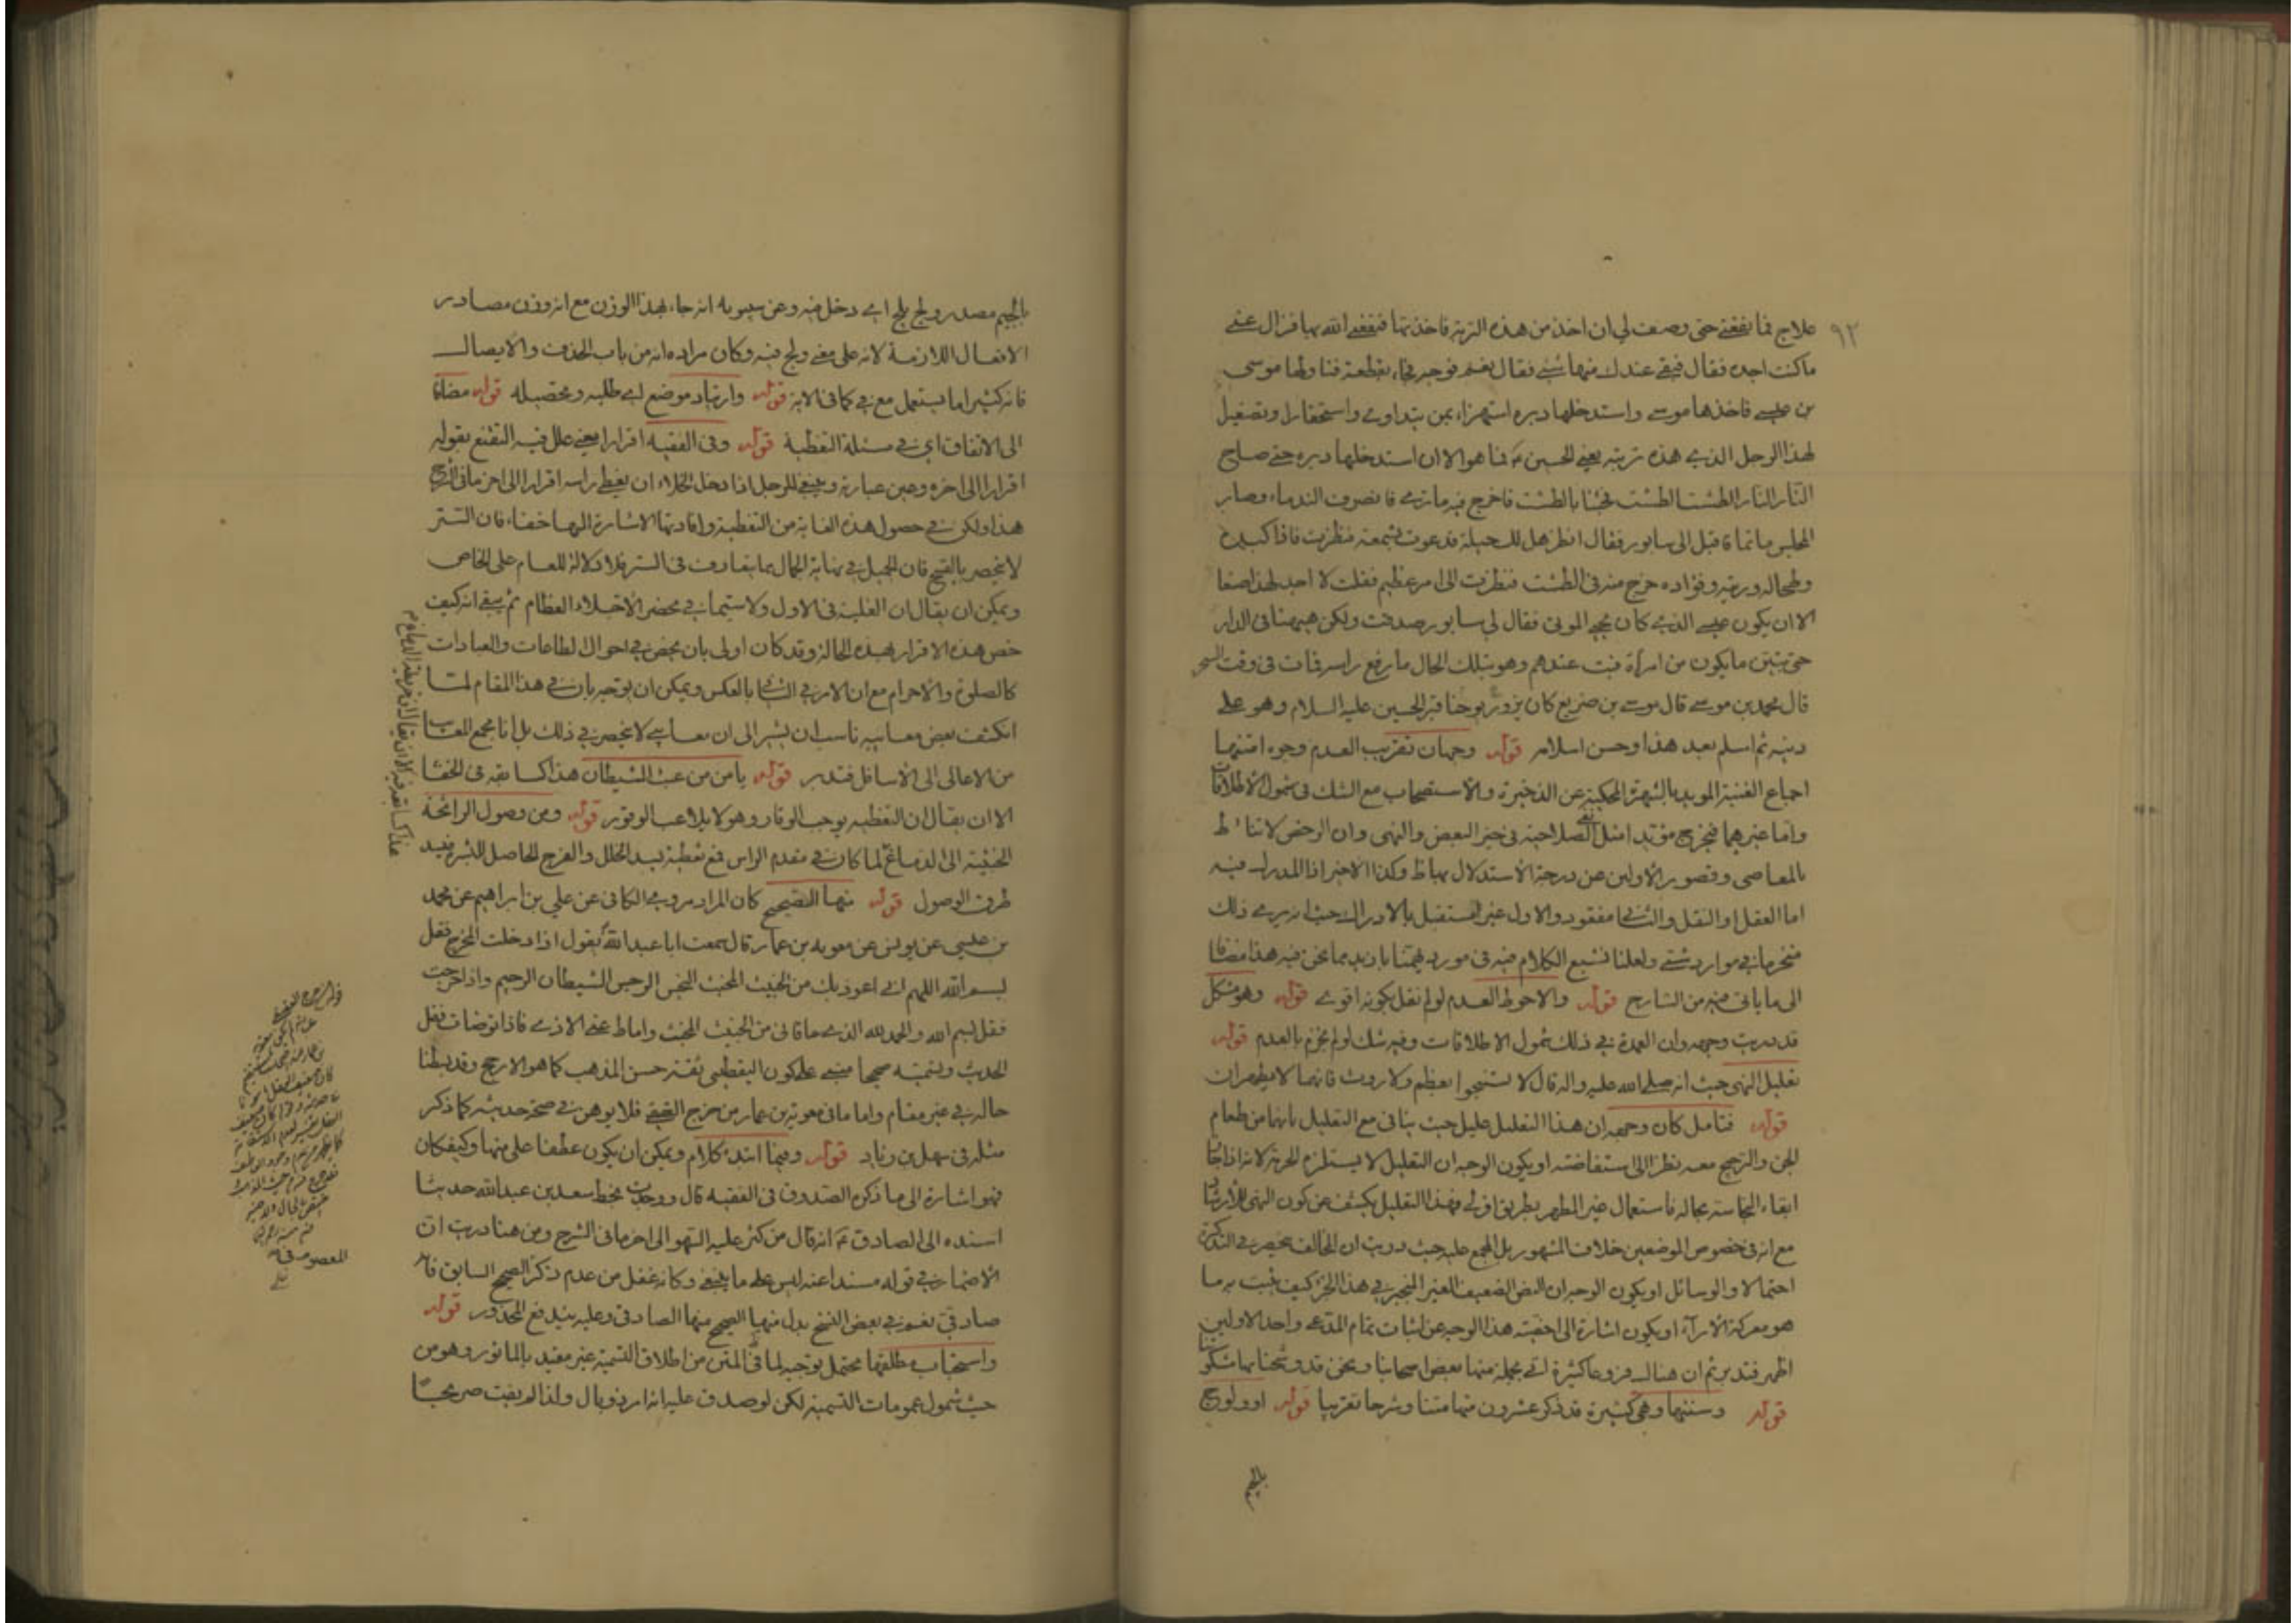 ٩٢
علاج فما نفعني حتى وصف لي ان اخذ من هذه التربة فاخذتها فنفعني الله بها فزال عني
ما كنت اجده فقال فبقي عندك منها شئ فقال نعم فوجه فجاء بقطعة فناولها موسى
بن عيسى فاخذها موسى واستدخلها دبره استهزاء بمن يتداوى واستحقارا وتصغيرا
لهذا الرجل الذي هذه تربته يعني الحسين ع فما هو الا ان استدخلها دبره حتى صاح
النار النار الطشت الطشت فجئنا بالطشت فاخرج فيه ما ترى فانصرف الندماء وصار
المجلس ماتما فاقبل الي سابور فقال انظر هل لك حيلة فدعوت بشمعة فنظرت فاذا كبده
وطحاله وريته وفؤاده خرج منه في الطشت فنظرت الى امر عظيم فقلت لا احد لهذا صنعا
الا ان يكون عيسى الذي كان يحيي الموتى فقال لي سابور صدقت ولكن هيهنا في الدار
حتى يتبين ما يكون من امره فبت عندهم وهو بتلك الحال ما رفع راسه فمات في وقت السحر
قال محمد بن موسى قال موسى بن سريع كان يزور يوحنا قبر الحسين عليه السلام وهو على
دينه ثم اسلم بعد هذا وحسن اسلامه قوله وجهان تقريب العدم وجوه امتنها
اجماع الغنية المويد بالشهرة المحكية عن الذخيرة والاستصحاب مع الشك في شمول الاطلاقات
واما غيرهما فيخرج مؤيدا مثل نفي الصلاحية في خبر البعض والنهى وان الرخص لا تناط
بالمعاصي وقصور الاولين عن درجة الاستدلال بهما ظ وكذا الاخير اذ المدرك فيه
اما العقل او النقل والثاني مفقود والاول غير مستقبل بالادراك حيث انه يرى ذلك
منخرما في موارد شتى ولعلنا نشبع الكلام فيه في مورد يهمنا بازيد مما نحن فيه هذا مضافا
الى ما ياتي فيه من الشارح قوله والاحوط العدم لو لم نقل بكونه اقوى قوله وهو مشكل
قد دريت وجهه وان العمدة في ذلك شمول الاطلاقات وفيه شك لو لم نجزم بالعدم قوله
تعليل النهي حيث انه صلى الله عليه واله قال لا تستنجوا بعظم ولا روث فانهما لا يطهران
قوله فتامل كان وجهه ان هذا التعليل عليل حيث ينافي مع التعليل بانهما من طعام
الجن والترجيح معه نظرا الى استفاضته او يكون الوجه ان التعليل لا يستلزم الحرمة لانه اذا جاز
ابقاء النجاسة بحاله فاستعمال غير المطهر بطريق اولى فهذا التعليل يكشف عن كون النهى للارشاد
مع انه في خصوص الموضعين خلاف المشهور بل المجمع عليه حيث دريت ان المخالف منحصر في التذكرة
احتمالا والوسائل او يكون الوجه ان النص الضعيف الغير المنجبر في هذا الجزء كيف يثبت به ما
هو معركة الاراء او يكون اشارة الى اخصية هذا الوجه عن اثبات تمام المدعى واحد الاولين
اظهر فتدبر ثم ان هنالك فروعا كثيرة اتى بجملة منها بعض اصحابنا ونحن قد وشحنا بها مشكوتنا
قوله وسننها وهي كثيرة قد ذكر عشرون منها متنا وشرحا تقريبا قوله او ولوج
بالجيم
بالجيم مصدر ولج يلج اي دخل فيه وعن سيبويه انه جاء بهذا الوزن مع انه وزن مصادر
الافعال اللازمة لانه على معنى ولج فيه وكان مراده انه من باب الحذف والايصال
فانه كثيرا ما يستعمل مع في كما في الاية قوله وارتياد موضع اي طلبه وتحصيله قوله مضافا
الى الاتفاق اي في مسئلة التغطية قوله وفي الفقيه اقرارا يعني علل فيه التقنع بقوله
اقرارا الى اخره وعين عبارته وينبغي للرجل اذا دخل الخلاء ان يغطي راسه اقرارا الى اخر ما في الشرح
هذا ولكن في حصول هذه الغاية من التغطية وافادتها الاشارة اليها خفاء فان التستر
لا ينحصر بالقبيح فان الجميل في نهاية الجمال مما يتعارف فى الستر فلا دلالة للعام على الخاص
ويمكن ان يقال ان الغلبة في الاول ولا سيما في محضر الاخلاء العظام ثم يبقى انه كيف
خص هذه الاقرار بهذه الحالة وقد كان اولى بان يحض في احوال الطاعات والعبادات
كالصلوة والاحرام مع ان الامر في الثاني بالعكس ويمكن ان يوجه بان في هذا المقام لما
انكشف بعض معايبه ناسب ان يشير الى ان معايبي لا ينحصر في ذلك بل انا مجمع المعايب
من الاعالى الى الاسافل فتدبر قوله يامن من عبث الشيطان هذا كسابقه في الخفاء
الا ان يقال ان التغطية يوجب الوقار وهو لا يلاعب الوقور قوله ومن وصول الرائحة
الخبيثة الى الدماغ لما كان في مقدم الراس فمع تغطية يسد الخلل والفرج الحاصل للبشر فيسد
طرق الوصول قوله منها الصحيح كان المراد مروي الكافي عن علي بن ابراهيم عن محمد
بن عيسى عن يونس عن معوية بن عمار قال سمعت ابا عبد الله ع يقول اذا دخلت المخرج فقل
بسم الله اللهم اني اعوذ بك من الخبيث المخبث النجس الرجس الشيطان الرجيم واذا خرجت
فقل بسم الله والحمد لله الذي عافاني من الخبيث المخبث واماط عني الاذى فاذا توضات فقل
الحديث وتسميته صحيحا مبني على كون اليقطيني ثقة حسن المذهب كما هو الارجح وقد بسطنا
حاله في غير مقام واما ما في معوية بن عمار من مزج الضعف فلا يوهن في صحة حديثه كما ذكر
مثله في سهل بن زياد قوله وفيما ابتدء كلام ويمكن ان يكون عطفا على منها وكيف كان
فهو اشارة الى ما ذكره الصدوق فى الفقيه قال ووجدت بخط سعد بن عبد الله حديثا
اسنده الى الصادق ع انه قال من كثر عليه السهو الى اخر ما في الشرح ومن هنا دريت ان
الاضمار في قوله مسندا عنه ليس على ما ينبغي وكانه غفل من عدم ذكر الصحيح السابق فانه
صادقي نعم في بعض النسخ بدل منها الصحيح منها الصادقي وعليه يندفع المحذور قوله
واستحباب مطلقها محتمل توجيه لما في المتن من اطلاق التسمية غير مقيد بالماثور وهو من
حيث شمول عمومات التسمية لكن لو صدق عليه انه امر ذو بال ولذا لم يفت صريحا